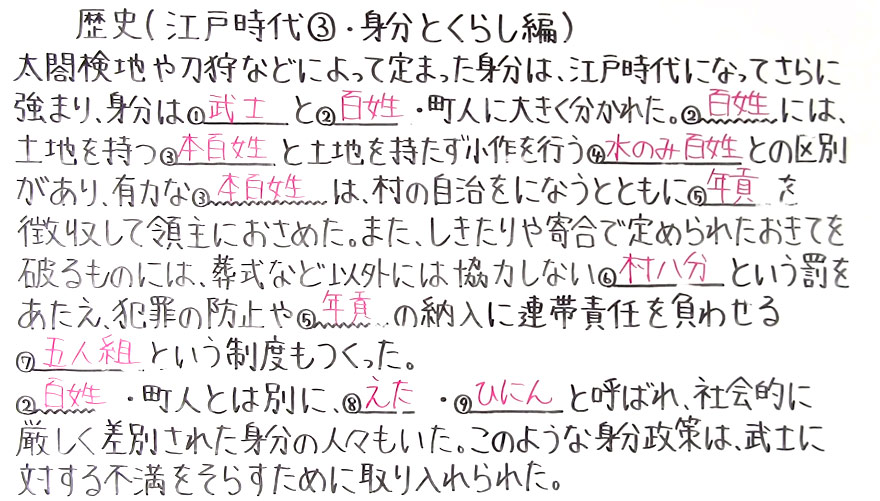 歴史(江戸時代③・身分とくらし編)
太閤検地や刀狩などによって定まった身分は、江戸時代になってさらに
強まり、身分は①武士と②百姓・町人に大きく分かれた。②百姓には、
土地を持つ③本百姓と土地を持たず小作を行う④水のみ百姓との区別
があり、有力な③本百姓は、村の自治をになうとともに⑤年貢を
徴収して領主におさめた。また、しきたりや寄合で定められたおきてを
破るものには、葬式など以外には協力しない⑥村八分という罰を
あたえ、犯罪の防止や⑤年貢の納入に連帯責任を負わせる
⑦五人組という制度もつくった。
②百姓・町人とは別に、⑧えた・⑨ひにんと呼ばれ、社会的に
厳しく差別された身分の人々もいた。このような身分政策は、武士に
対する不満をそらすために取り入れられた。